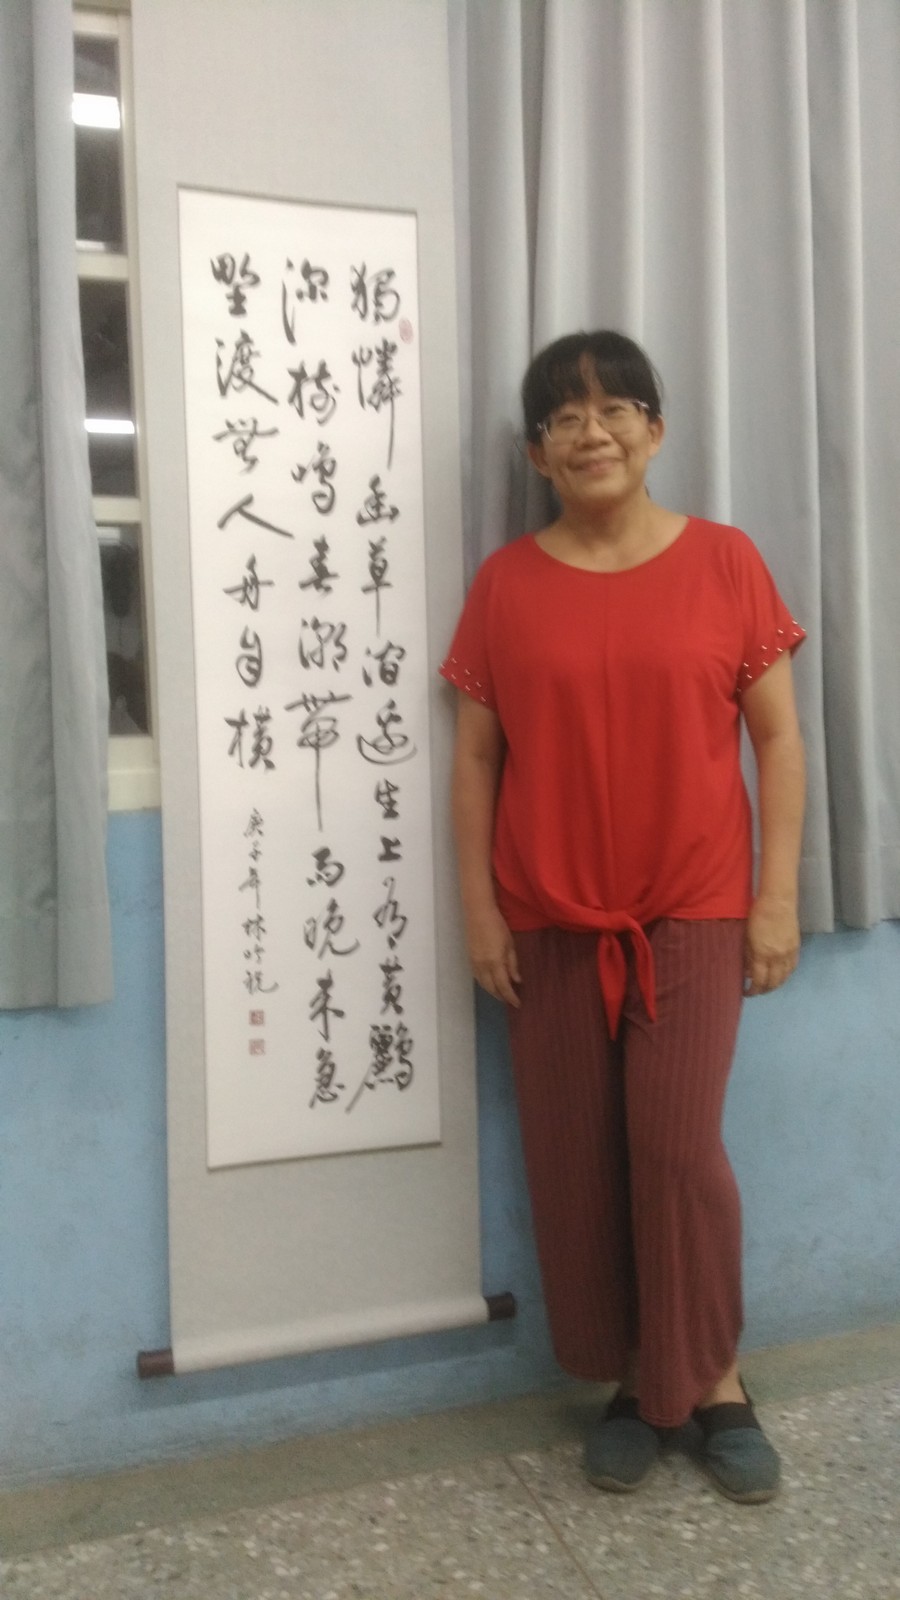 獨憐幽草澗邊生上有黃鸝
深樹鳴春潮帶雨晚來急
野渡無人舟自橫
庚子年林吟祝